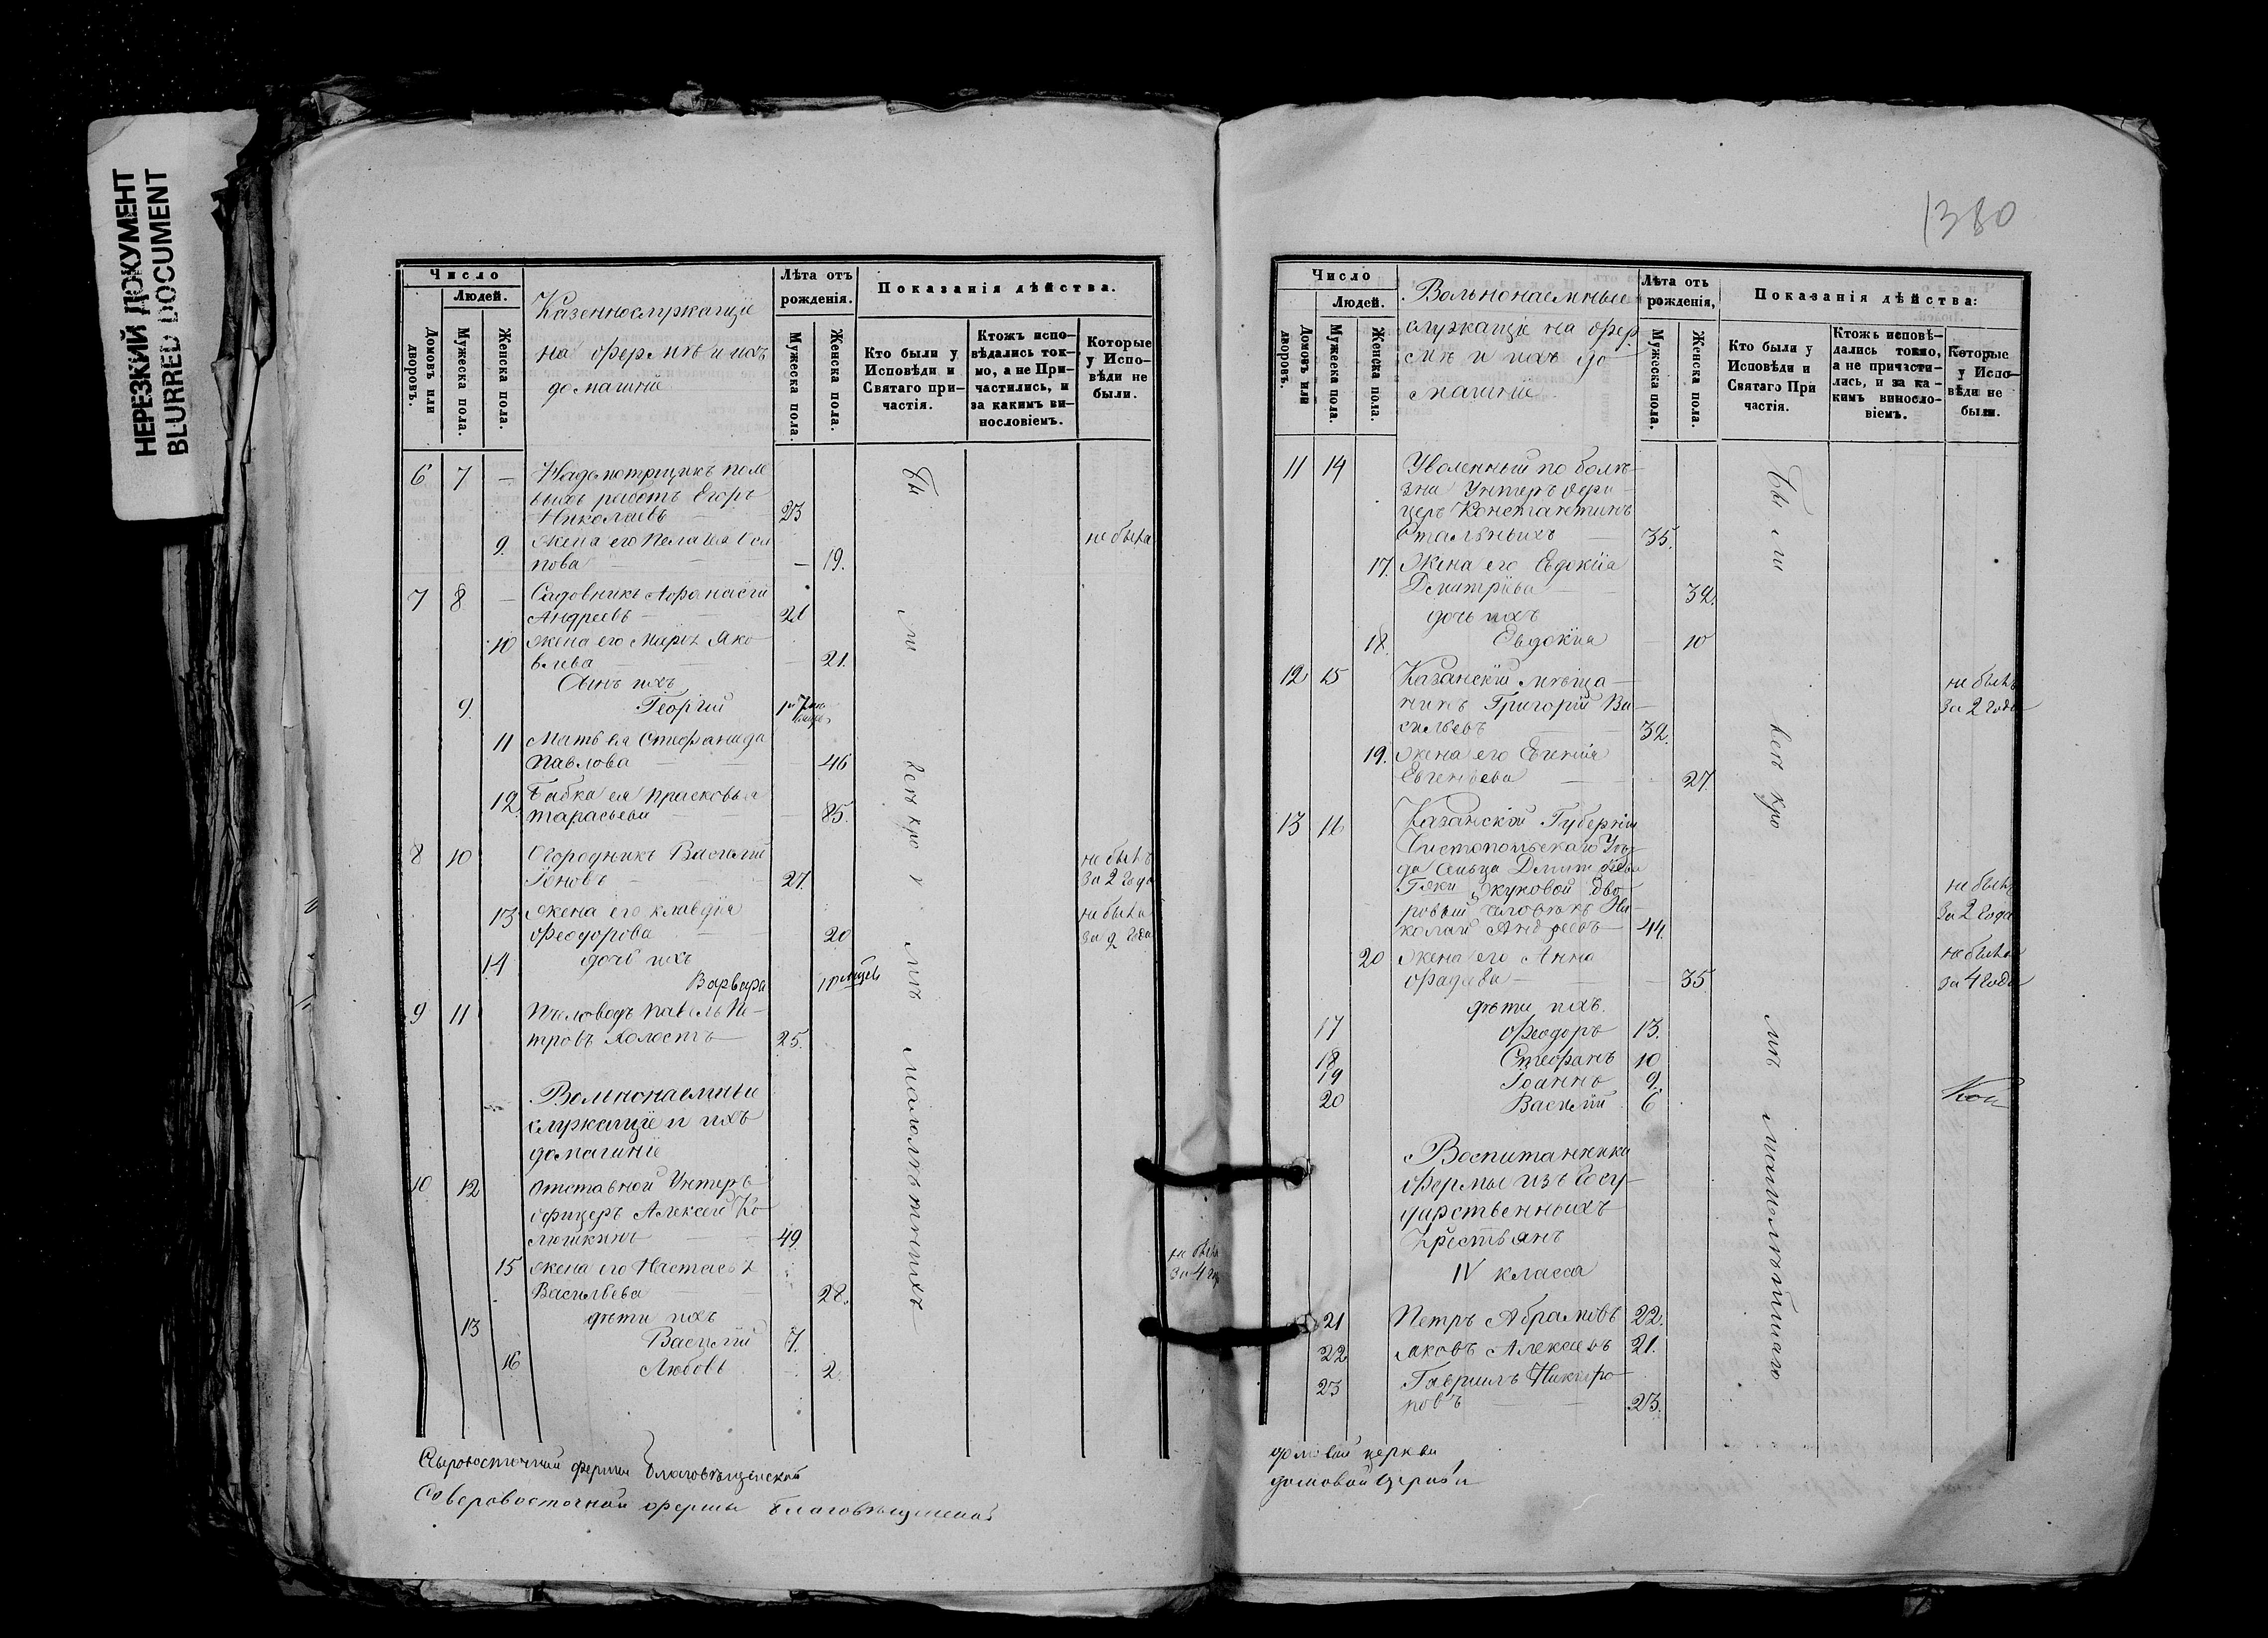 НЕРЕЗКИЙ ДОКУМЕНТ
BLURRED DOCUMENT
Число
Людей.
Домовъ или дворовъ.
Мужеска пола.
Женска пола.
Казеннослужащіе
на фермѣ и ихъ
домашніе
Лѣта отъ
рожденія.
Мужеска пола.
Женска пола.
Показанія дѣйства.
Кто были у
Исповѣди и
Святаго при-
частія.
Ктожъ испо-
вѣдались ток-
мо, а не При-
частились, и
за какимъ ви-
нословіемъ.
Которые
у Испо-
вѣди не
были.
6 7 — Надсмотрщикъ поле
выхъ работъ Егоръ
Николаевъ — 23
9. жена его Пелагея
пова — — 19. не была
7 8 — Садовникъ Афонасій
Андреевъ — 21
10 жена его Марья Яко
влева — — 21.
Сынъ ихъ
9. Георгій
11 Мать ея Стефанида
Павлова — — 46
12 Бабка ея Прасковья
Тарасьева — — 85.
8 10 Огородникъ Василій
Іоновъ — 27. не былъ
за 2 года
13 жена его Клавдія
Феодорова — 20 не была
за 2 года
14 дочь ихъ
Варвара
9 11 Пчеловодъ Павелъ Пе-
тровъ холостъ — 25.
Вольнонаемные
служащіе и ихъ
домашніе
10 12 Отставной Унтеръ-
офицеръ Алексей Ко-
люшкинъ — 49
15 жена его Настасья
Васильева — 28. не была
за 4 го
дѣти ихъ
13 Василій 7.
16 Любовь — 2.
Бы ли всѣ кро мѣ малолѣтнихъ
Сѣверовосточной фермы Благовѣщенской
Северовосточной фермы Благовѣщенской
1380
Число
Людей.
Домовъ или дворовъ.
Мужеска пола.
Женска пола.
Вольнонаемные
служащіе на фер
мѣ и ихъ до
машніе.
Лѣта отъ
рожденія,
Мужеска пола.
Женска пола.
Показанія дѣйства:
Кто были у
Исповѣди и
Святаго При
частія.
Ктожъ исповѣ-
дались токмо,
а не причасти-
лись, и за ка-
кимъ винослo-
віемъ.
Которые
у Испо-
вѣди не
были.
11 14 Уволенный по болѣ-
зни Унтеръ офи-
церъ Константинъ
Стальныхъ — 35.
17. Жена его Евдокія
Дмитріева — — 32.
дочь ихъ
18. Евдокія — 10
12 15 Казанскій мѣща-
нинъ Григорій Ва-
сильевъ — 32. не былъ
за 2 года
19. жена его Евгенія
Евгеньева — — 27.
13 16 Казанской Губерніи
Чистопольскаго Уѣз-
да сельца Дмит
Жуковой дво-
ровый человѣкъ Ни-
колай Андреевъ — 44. не былъ
за 2 года
20 жена его Анна
Фадѣева — — 35. не была
за 4 года
дѣти ихъ.
17 Феодоръ 13.
18 Стефанъ 10
19 Іоаннъ 9.
20 Василій 6
Воспитанники
Фермы изъ Госу-
дарственныхъ
Крестьянъ
IV класса
21 Петръ Абрамовъ 22.
22 Яковъ Алексеевъ 21.
23 Гавріилъ Никифо
ровъ — — 23.
Бы ли всѣ кро мѣ
домовой церкви
домовой Церкви